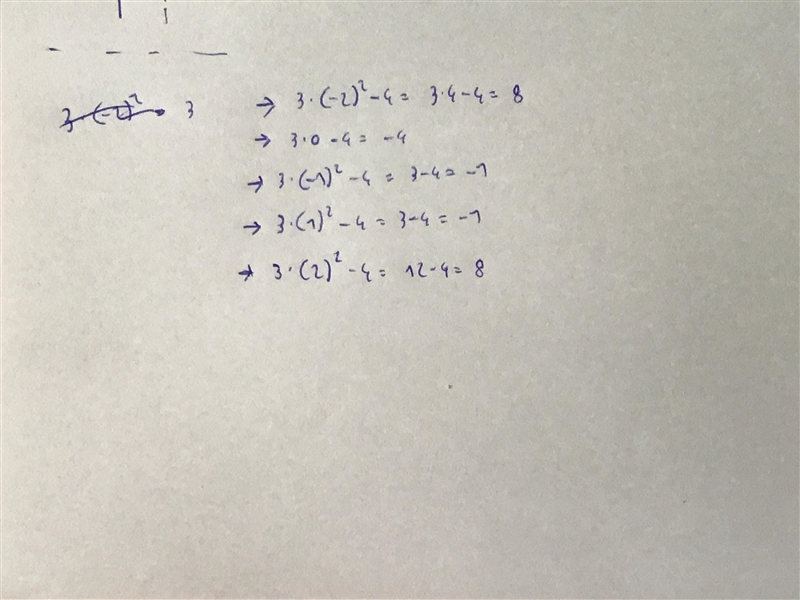 3·(-2)² 3 → 3·(-2)² - 4 = 3·4 - 4 = 8
→ 3·0 - 4 = -4
→ 3·(-1)² - 4 = 3 - 4 = -1
→ 3·(1)² - 4 = 3 - 4 = -1
→ 3·(2)² - 4 = 12 - 4 = 8